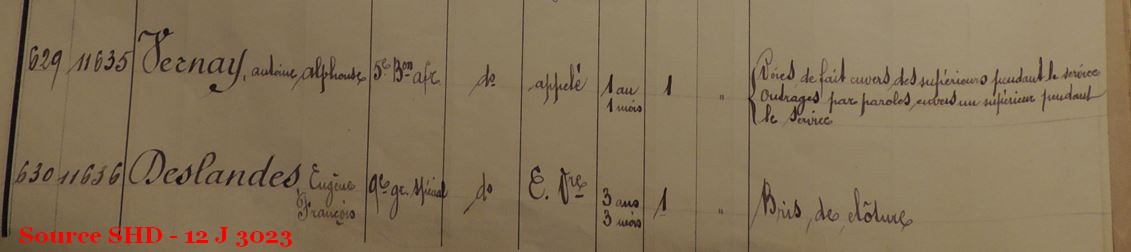 629 11635 Vernay, antoine, alphonse 5e Bon afr do appelé 1 an 1 mois 1 " Voies de fait envers des supérieurs pendant le service
Outrages par paroles envers un supérieur pendant
le service
630 11636 Deslandes Eugène François 9e gr. spécial do E. Vre 3 ans 3 mois 1 " Bris de clôture
Source SHD - 12 J 3023